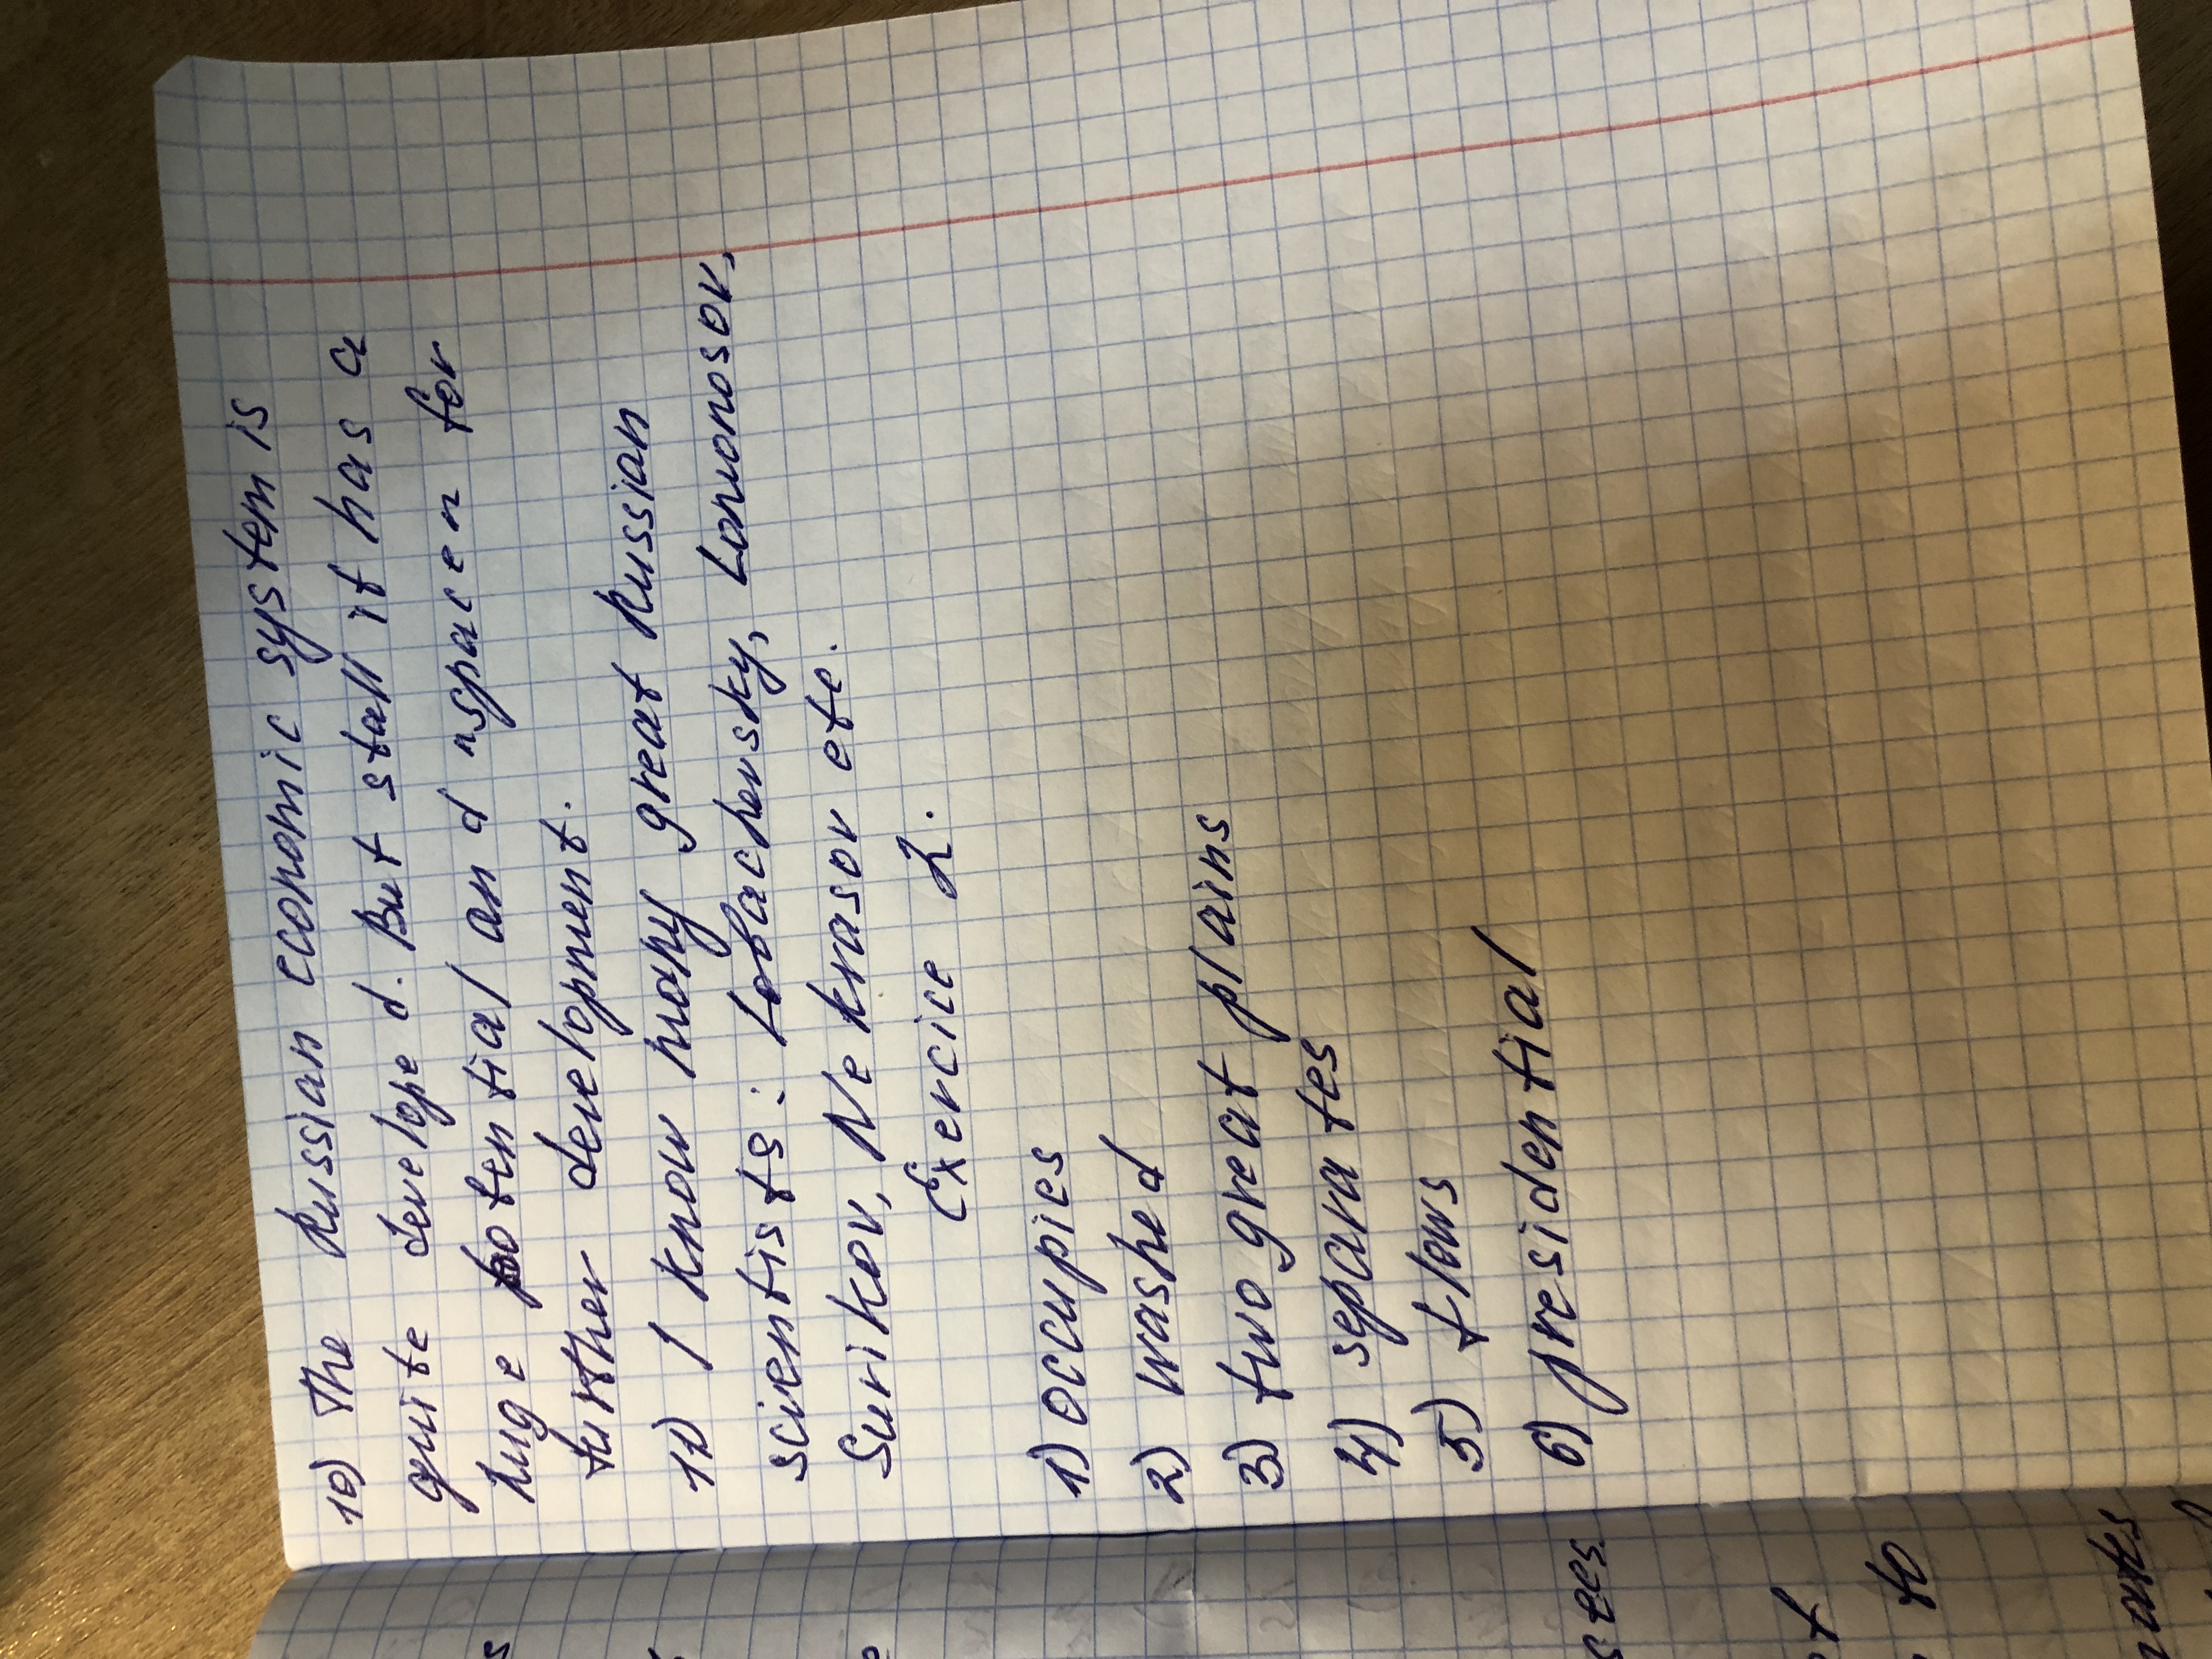 10) The Russian economic system is
quite developed. But stall it has a
huge potential and nspacen for
further development.
11) I know many great Russian
scientists: Lobachevsky, Lomonosov,
Surikov, Nekrasov ete.
Exercice 2.
1) occupies
2) washed
3) two great plains
4) separates
5) flows
6) presidential
to